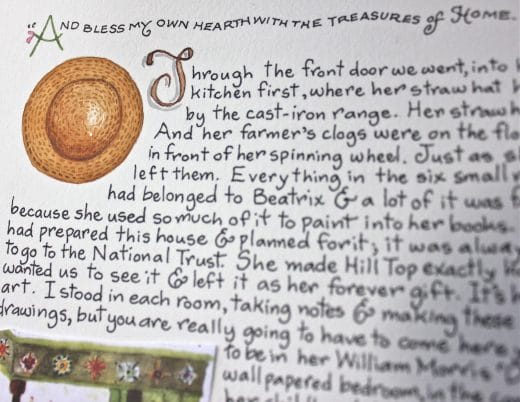 "AND BLESS MY OWN HEARTH WITH THE TREASURES of HOME.
Through the front door we went, into
kitchen first, where her straw hat
by the cast-iron range. Her straw
And her farmer's clogs were on the
in front of her spinning wheel. Just as
left them. Everything in the six small
had belonged to Beatrix & a lot of it was
because she used so much of it to paint into her books.
had prepared this house & planned for it; it was
to go to the National Trust. She made Hill Top exactly
wanted us to see it & left it as her forever gift. It's
art. I stood in each room, taking notes & making these
drawings, but you are really going to have to come here
to be in her William Morris
wall papered bedroom, in the